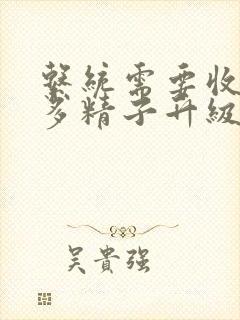 繫統需要收
多精子升級
吳貴强